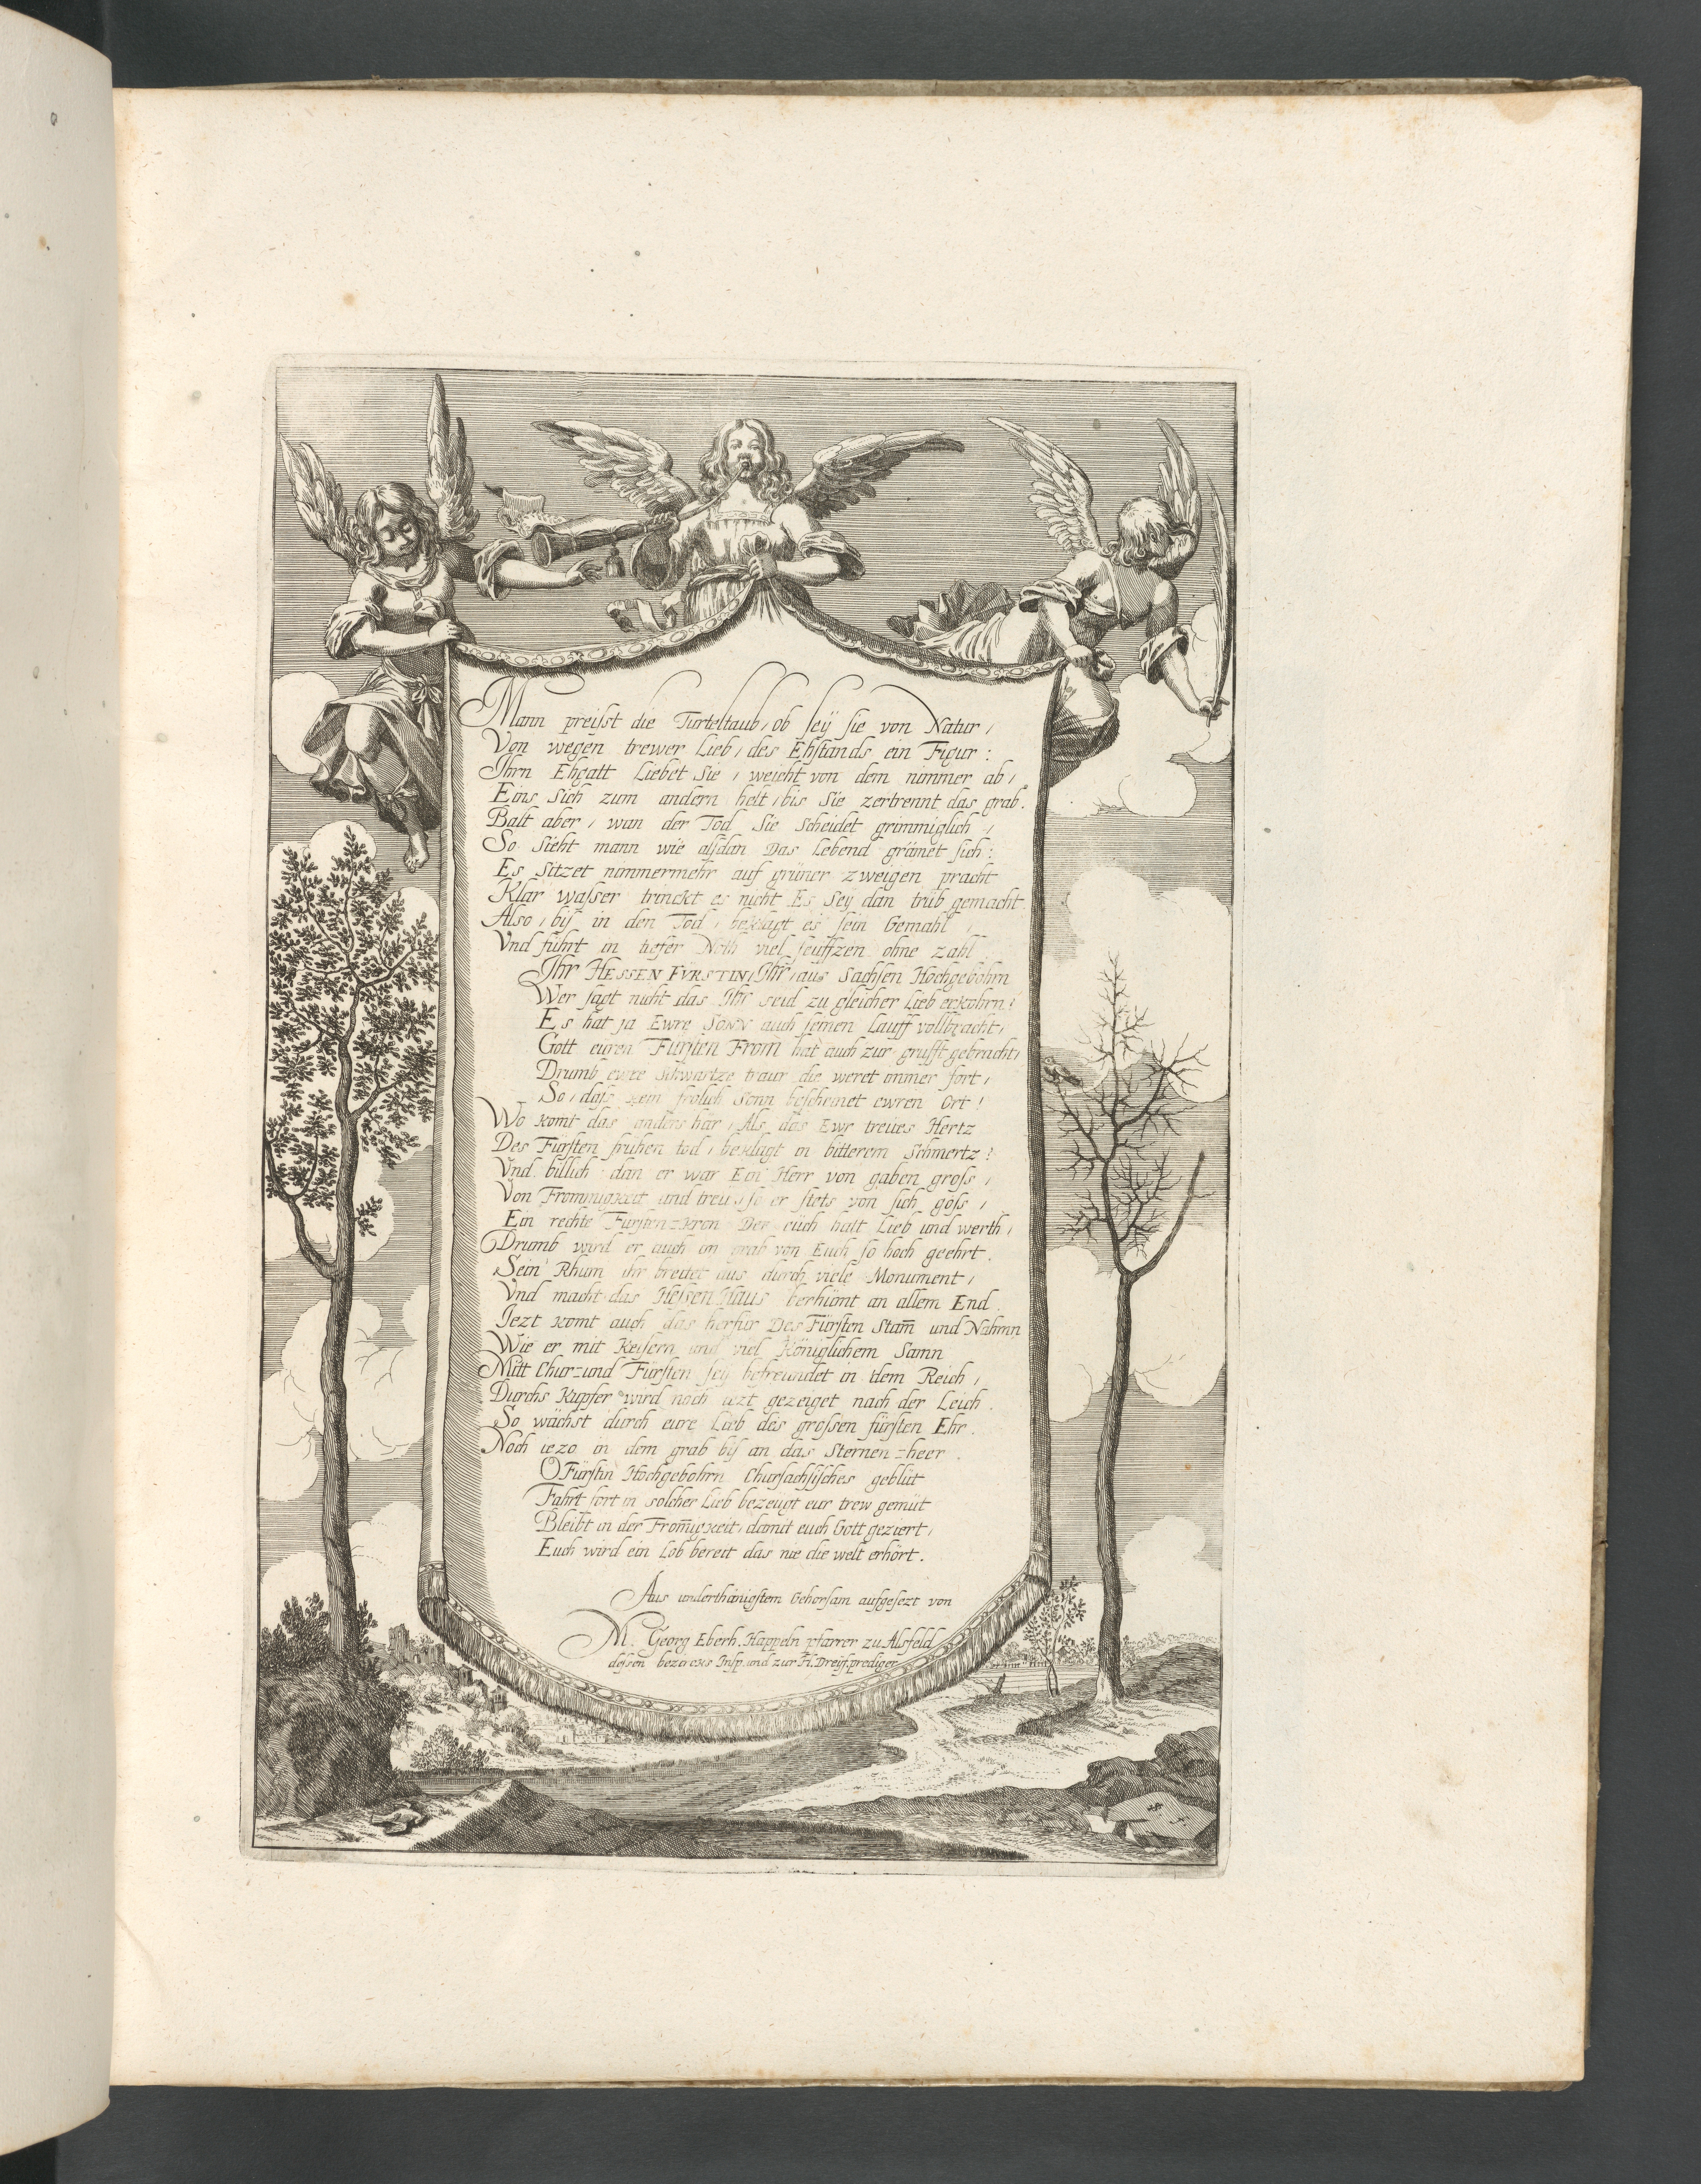 Mann preisst die Turteltaub, ob sey sie von Natur,
Von wegen trewer Lieb, des Ehstands ein Figur:
Ihrn Ehgatt Liebet Sie, weicht von dem nimmer ab,
Eins Sich zum andern helt, bis Sie zertrennt das grab.
Balt aber, wan der Tod Sie Scheidet grimmiglich,
So Sieht mann wie alsdan Das Lebend grämet sich:
Es Sitzet nimmermehr auf grüner zweigen pracht
Klar wasser trinckt es nicht Es Sey dan trüb gemacht
Also, bis in den Tod, beklagt es sein Gemahl,
Vnd führt in tiefer Noth viel seuffzen ohne zahl
Ihr HESSEN FÜRSTIN, Ihr, aus Sachsen Hochgebohrn
Wer sagt nicht das Ihr seid zu gleicher Lieb erkohrn?
Es hat ja Ewre SONN auch seinen Lauff vollbracht,
Gott euren Fürsten From hat auch zur grufft gebracht,
Drumb ewre Schwartze traur die weret immer fort,
So, dass kein frölich Sonn bescheinet ewren Ort!
Wo komt das anders här, Als das Ewr treues Hertz
Des Fürsten fruhen tod, beklagt in bitterem Schmertz?
Vnd billich dan er war Ein Herr von gaben gross,
Von Frommigkeit und treü, so er stets von sich goss,
Ein rechte Fürsten-kron Der eüch halt Lieb und werth,
Drumb wird er auch im grab von Euch so hoch geehrt.
Sein Rhum ihr breitet aus durch viele Monument,
Vnd macht das Hessen Haus berhümt an allem End.
Jezt komt auch das herfür Des Fürsten Stam̄ und Nahmn
Wie er mit Keisern und viel Königlichem Samn
Mitt Chur-und Fürsten sey befreundet in dem Reich,
Durchs Kupfer wird noch iezt gezeiget nach der Leich.
So wächst durch eure Lieb des grossen fürsten Ehr.
Noch iezo in dem grab bis an das Sternen-heer.
O Fürstin Hochgebohrn Chursachsisches geblüt
Fahrt fort in solcher Lieb bezeugt eur trew gemüt
Bleibt in der From̄igkeit, damit euch Gott geziert,
Euch wird ein Lob bereit das nie die welt erhört.
Aus underthänigstem Gehorsam aufgesezt von
M. Georg Eberh. Happeln pfarrer zu Alsfeld
dessen bezircks Insp. und zur H. Dreyf. prediger